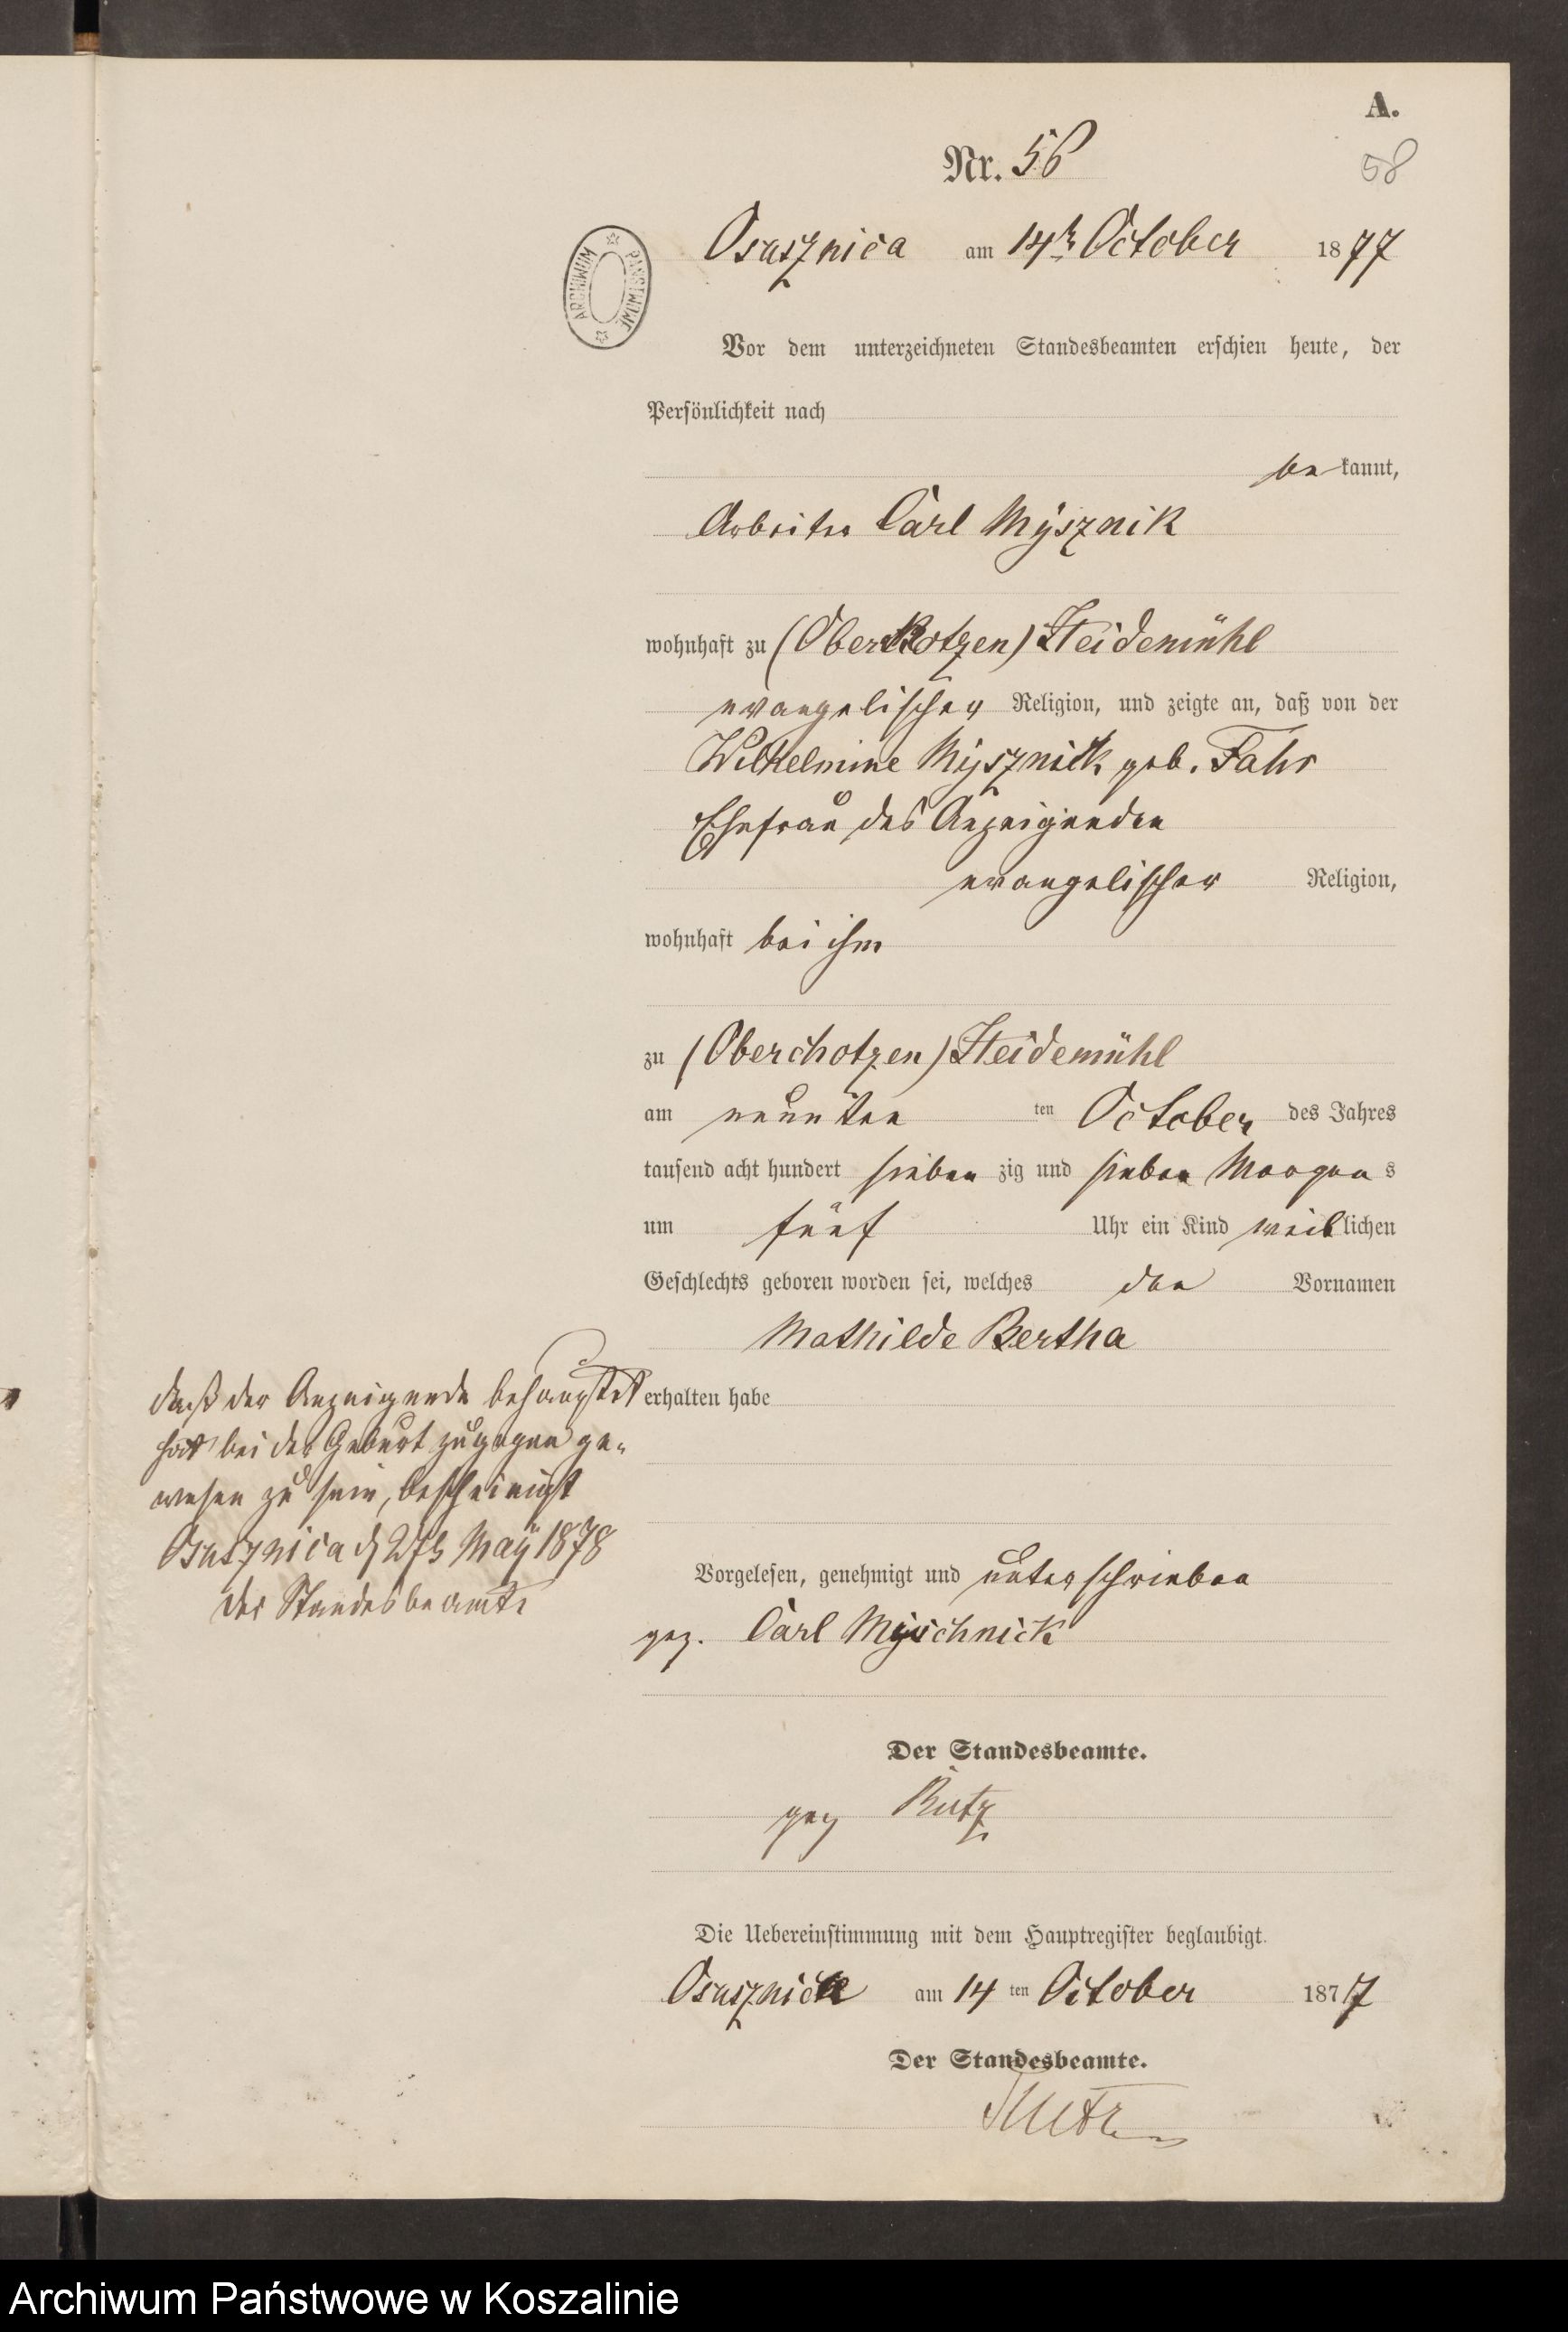 A.
Nr. 56
58
ARCHIWUM PAŃSTWOWE
Osusznica am 14t October 1877
Vor dem unterzeichneten Standesbeamten erschien heute, der
Persönlichkeit nach
be kannt,
Arbeiter Carl Mÿsznik
wohnhaft zu (OberKotzen) Heidemühl
evangelischer Religion, und zeigte an, daß von der
Wilhelmine Mysznick geb. Fahr
Ehefrau des Anzeigenden
evangelischer Religion,
wohnhaft bei ihm
zu (Oberchotzen) Heidemühl
am neunten ten October des Jahres
tausend acht hundert sieben zig und sieben Morgens
um fünf Uhr ein Kind weiblichen
Geschlechts geboren worden sei, welches den Vornamen
Mathilde Bertha
erhalten habe
daß der Anzeigende behauptet
hat bei der Geburt zugegen ge-
wesen zu sein, bescheinigt
Osusznica d 27t Maÿ 1878
der Standesbeamte
Vorgelesen, genehmigt und unterschrieben
gez. Carl Myschnick
Der Standesbeamte.
gez Rutz
Die Uebereinstimmung mit dem Hauptregister beglaubigt.
Osusznica am 14 ten October 1877
Der Standesbeamte.
Rutz
Archiwum Państwowe w Koszalinie